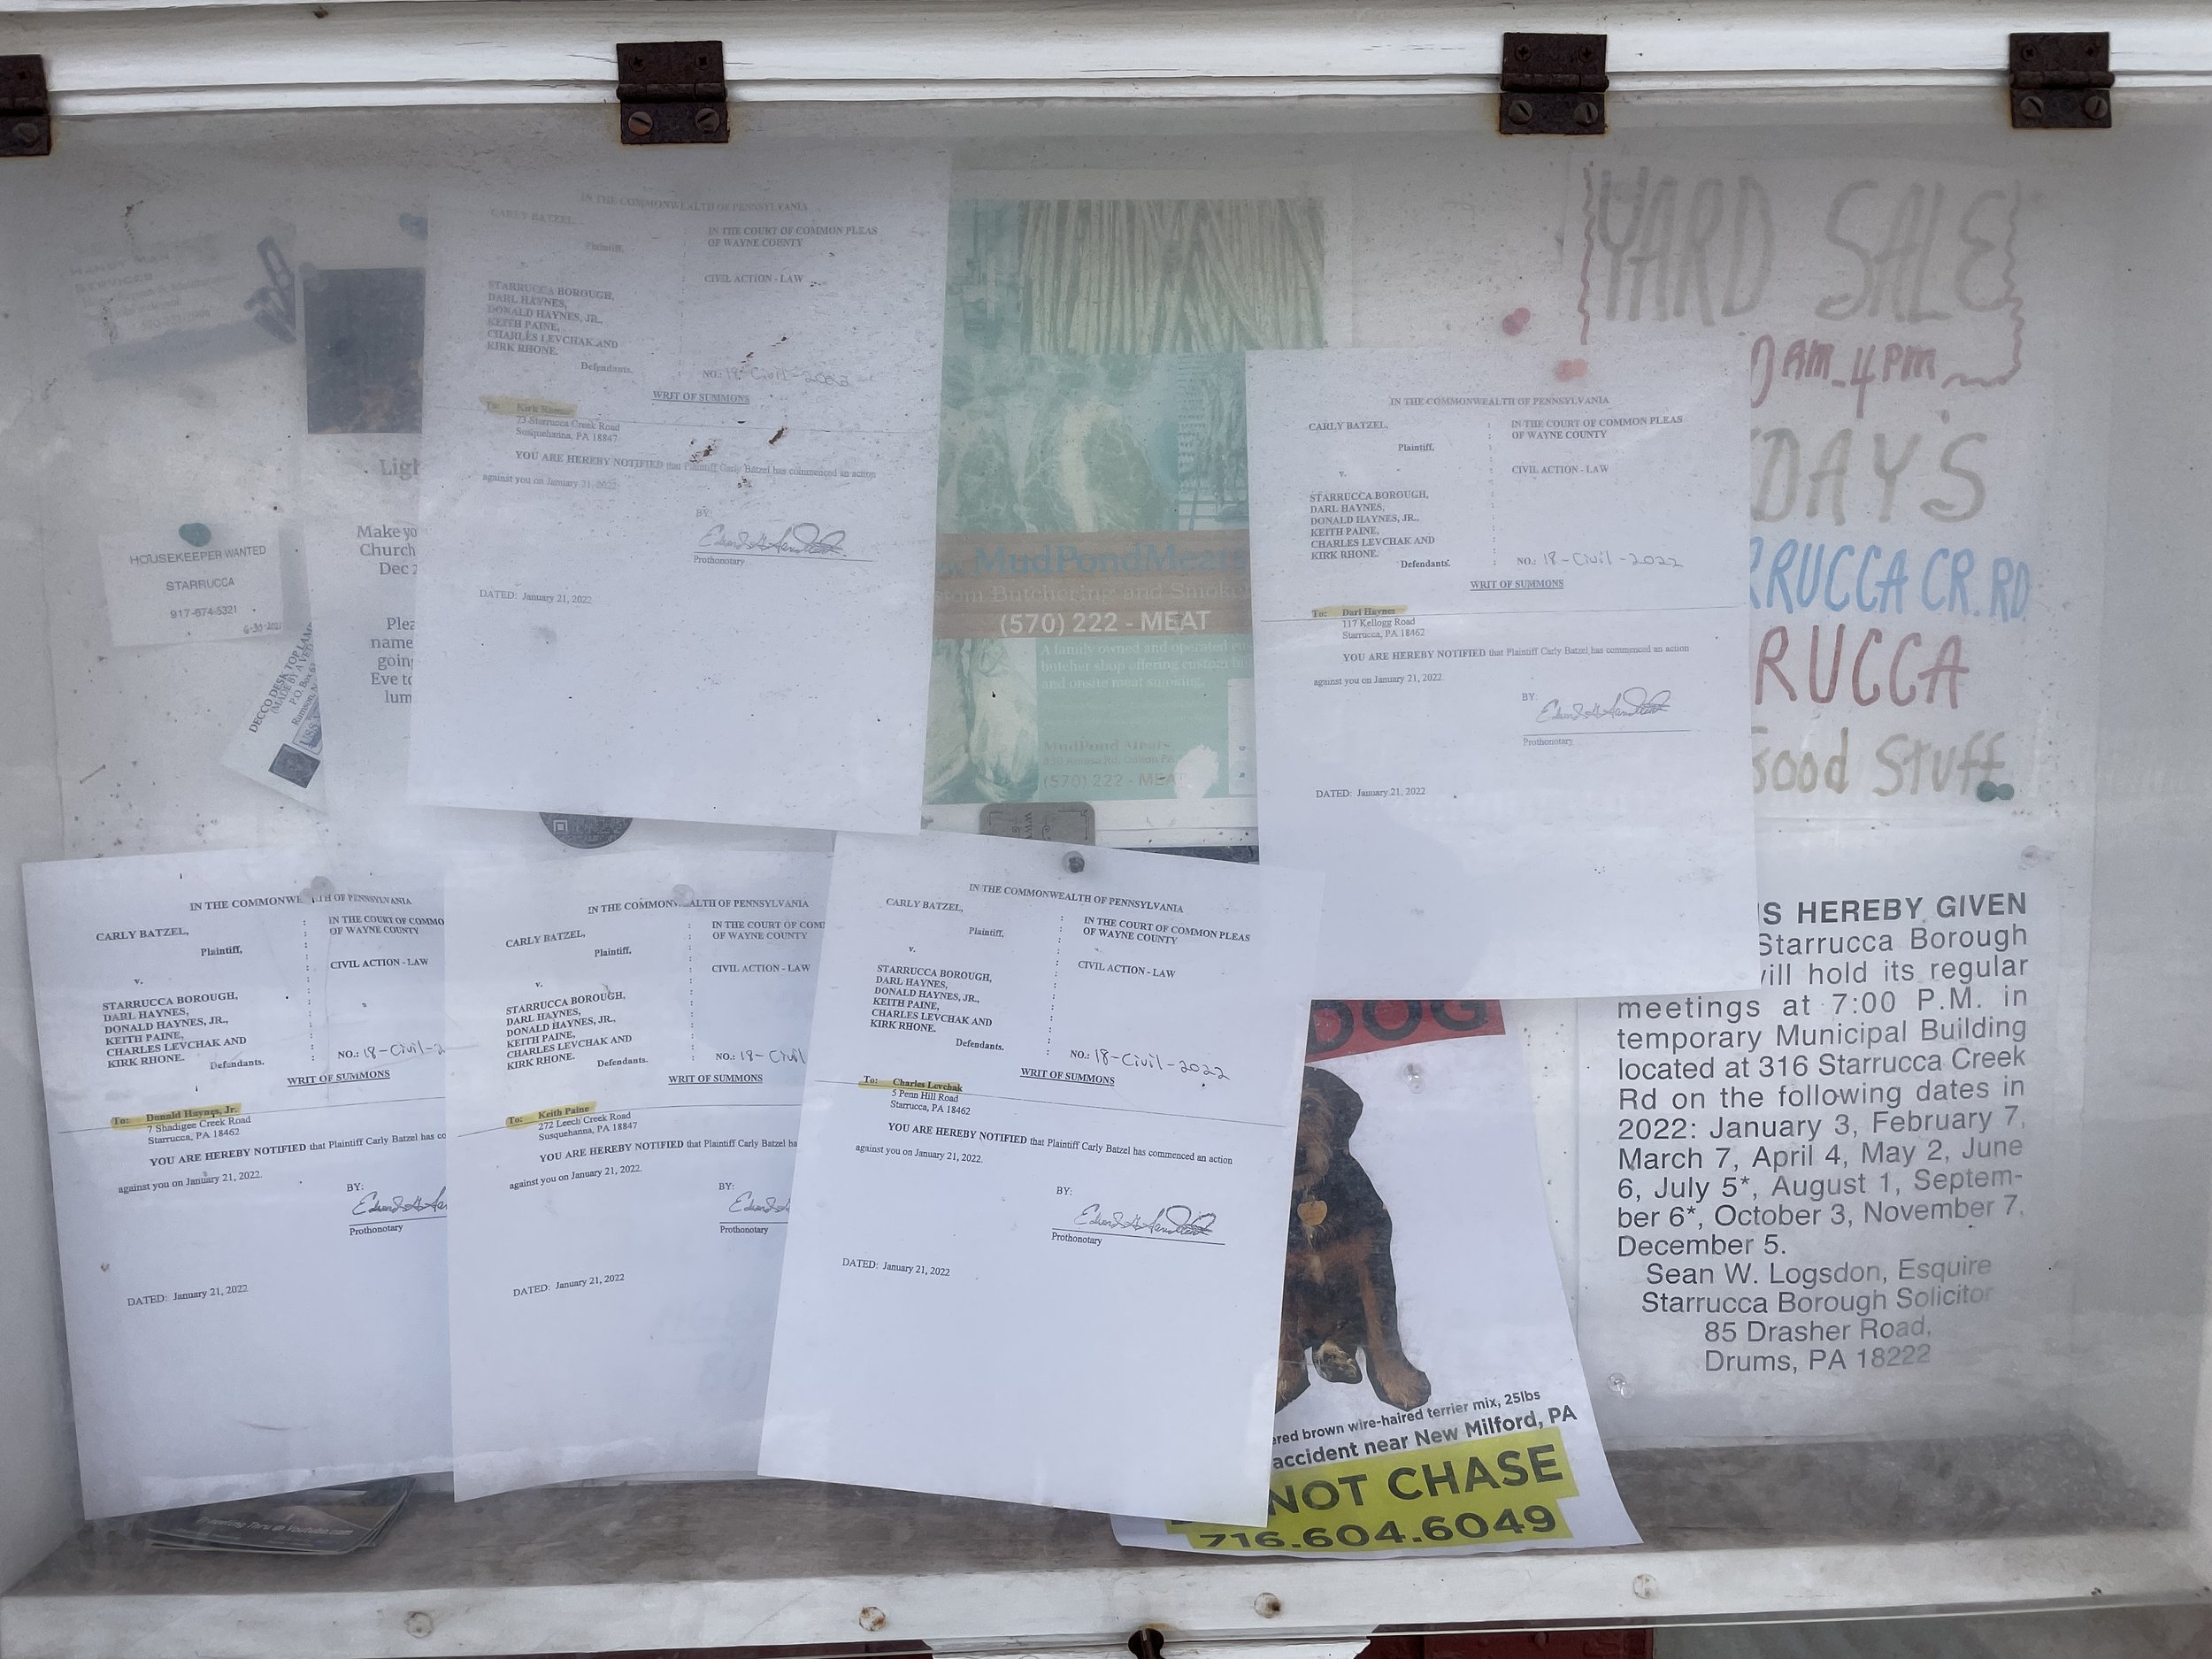 IN THE COMMONWEALTH OF PENNSYLVANIA
CARLY BATZEL,
Plaintiff,
IN THE COURT OF COMMON PLEAS
OF WAYNE COUNTY
CIVIL ACTION - LAW
STARRUCCA BOROUGH,
DARL HAYNES,
DONALD HAYNES, JR.,
KEITH PAINE,
CHARLES LEVCHAK AND
KIRK RHONE.
Defendants.
NO.: 18-Civil-2022
WRIT OF SUMMONS
To: Kirk Rhone
73 Starrucca Creek Road
Susquehanna, PA 18847
YOU ARE HEREBY NOTIFIED that Plaintiff Carly Batzel has commenced an action
against you on January 21, 2022.
BY:
Prothonotary
DATED: January 21, 2022
HOUSEKEEPER WANTED
STARRUCCA
917-674-5321
6-30-2021
Ligh
Make yo
Church
Dec 2
Plea
name
goin
Eve to
lum
DECCO DESK TOP LAM
(MADE BY A VET
P.O. Box
Rumson, N
MudPondMeats
tom Butchering and Smoke
(570) 222 - MEAT
A family owned and operated
butcher shop offering custom
and onsite meat smoking.
MudPond Meats
(570) 222 - MEAT
IN THE COMMONWEALTH OF PENNSYLVANIA
CARLY BATZEL,
Plaintiff,
v.
IN THE COURT OF COMMON PLEAS
OF WAYNE COUNTY
CIVIL ACTION - LAW
STARRUCCA BOROUGH,
DARL HAYNES,
DONALD HAYNES, JR.,
KEITH PAINE,
CHARLES LEVCHAK AND
KIRK RHONE.
Defendants.
NO.: 18-Civil-2022
WRIT OF SUMMONS
To: Darl Haynes
117 Kellogg Road
Starrucca, PA 18462
YOU ARE HEREBY NOTIFIED that Plaintiff Carly Batzel has commenced an action
against you on January 21, 2022.
BY:
Prothonotary
DATED: January 21, 2022
YARD SALE
0 AM - 4 PM
DAY'S
RRUCCA CR. RD.
RUCCA
Good Stuff
IN THE COMMONWEALTH OF PENNSYLVANIA
CARLY BATZEL,
Plaintiff,
v.
IN THE COURT OF COMMO
OF WAYNE COUNTY
CIVIL ACTION - LAW
STARRUCCA BOROUGH,
DARL HAYNES,
DONALD HAYNES, JR.,
KEITH PAINE,
CHARLES LEVCHAK AND
KIRK RHONE.
Defendants.
NO.: 18-Civil-2
WRIT OF SUMMONS
To: Donald Haynes, Jr.
7 Shadigee Creek Road
Starrucca, PA 18462
YOU ARE HEREBY NOTIFIED that Plaintiff Carly Batzel has co
against you on January 21, 2022.
BY:
Prothonotary
DATED: January 21, 2022
IN THE COMMONWEALTH OF PENNSYLVANIA
CARLY BATZEL,
Plaintiff,
v.
IN THE COURT OF COM
OF WAYNE COUNTY
CIVIL ACTION - LAW
STARRUCCA BOROUGH,
DARL HAYNES,
DONALD HAYNES, JR.,
KEITH PAINE,
CHARLES LEVCHAK AND
KIRK RHONE.
Defendants.
NO.: 18-Civil
WRIT OF SUMMONS
To: Keith Paine
272 Leech Creek Road
Susquehanna, PA 18847
YOU ARE HEREBY NOTIFIED that Plaintiff Carly Batzel ha
against you on January 21, 2022.
BY:
Prothonotary
DATED: January 21, 2022
IN THE COMMONWEALTH OF PENNSYLVANIA
CARLY BATZEL,
Plaintiff,
v.
IN THE COURT OF COMMON PLEAS
OF WAYNE COUNTY
CIVIL ACTION - LAW
STARRUCCA BOROUGH,
DARL HAYNES,
DONALD HAYNES, JR.,
KEITH PAINE,
CHARLES LEVCHAK AND
KIRK RHONE.
Defendants.
NO.: 18-Civil-2022
WRIT OF SUMMONS
To: Charles Levchak
5 Penn Hill Road
Starrucca, PA 18462
YOU ARE HEREBY NOTIFIED that Plaintiff Carly Batzel has commenced an action
against you on January 21, 2022.
BY:
Prothonotary
DATED: January 21, 2022
DOG
ered brown wire-haired terrier mix, 25lbs
accident near New Milford, PA
NOT CHASE
716.604.6049
IS HEREBY GIVEN
Starrucca Borough
will hold its regular
meetings at 7:00 P.M. in
temporary Municipal Building
located at 316 Starrucca Creek
Rd on the following dates in
2022: January 3, February 7,
March 7, April 4, May 2, June
6, July 5*, August 1, Septem-
ber 6*, October 3, November 7,
December 5.
Sean W. Logsdon, Esquire
Starrucca Borough Solicitor
85 Drasher Road,
Drums, PA 18222